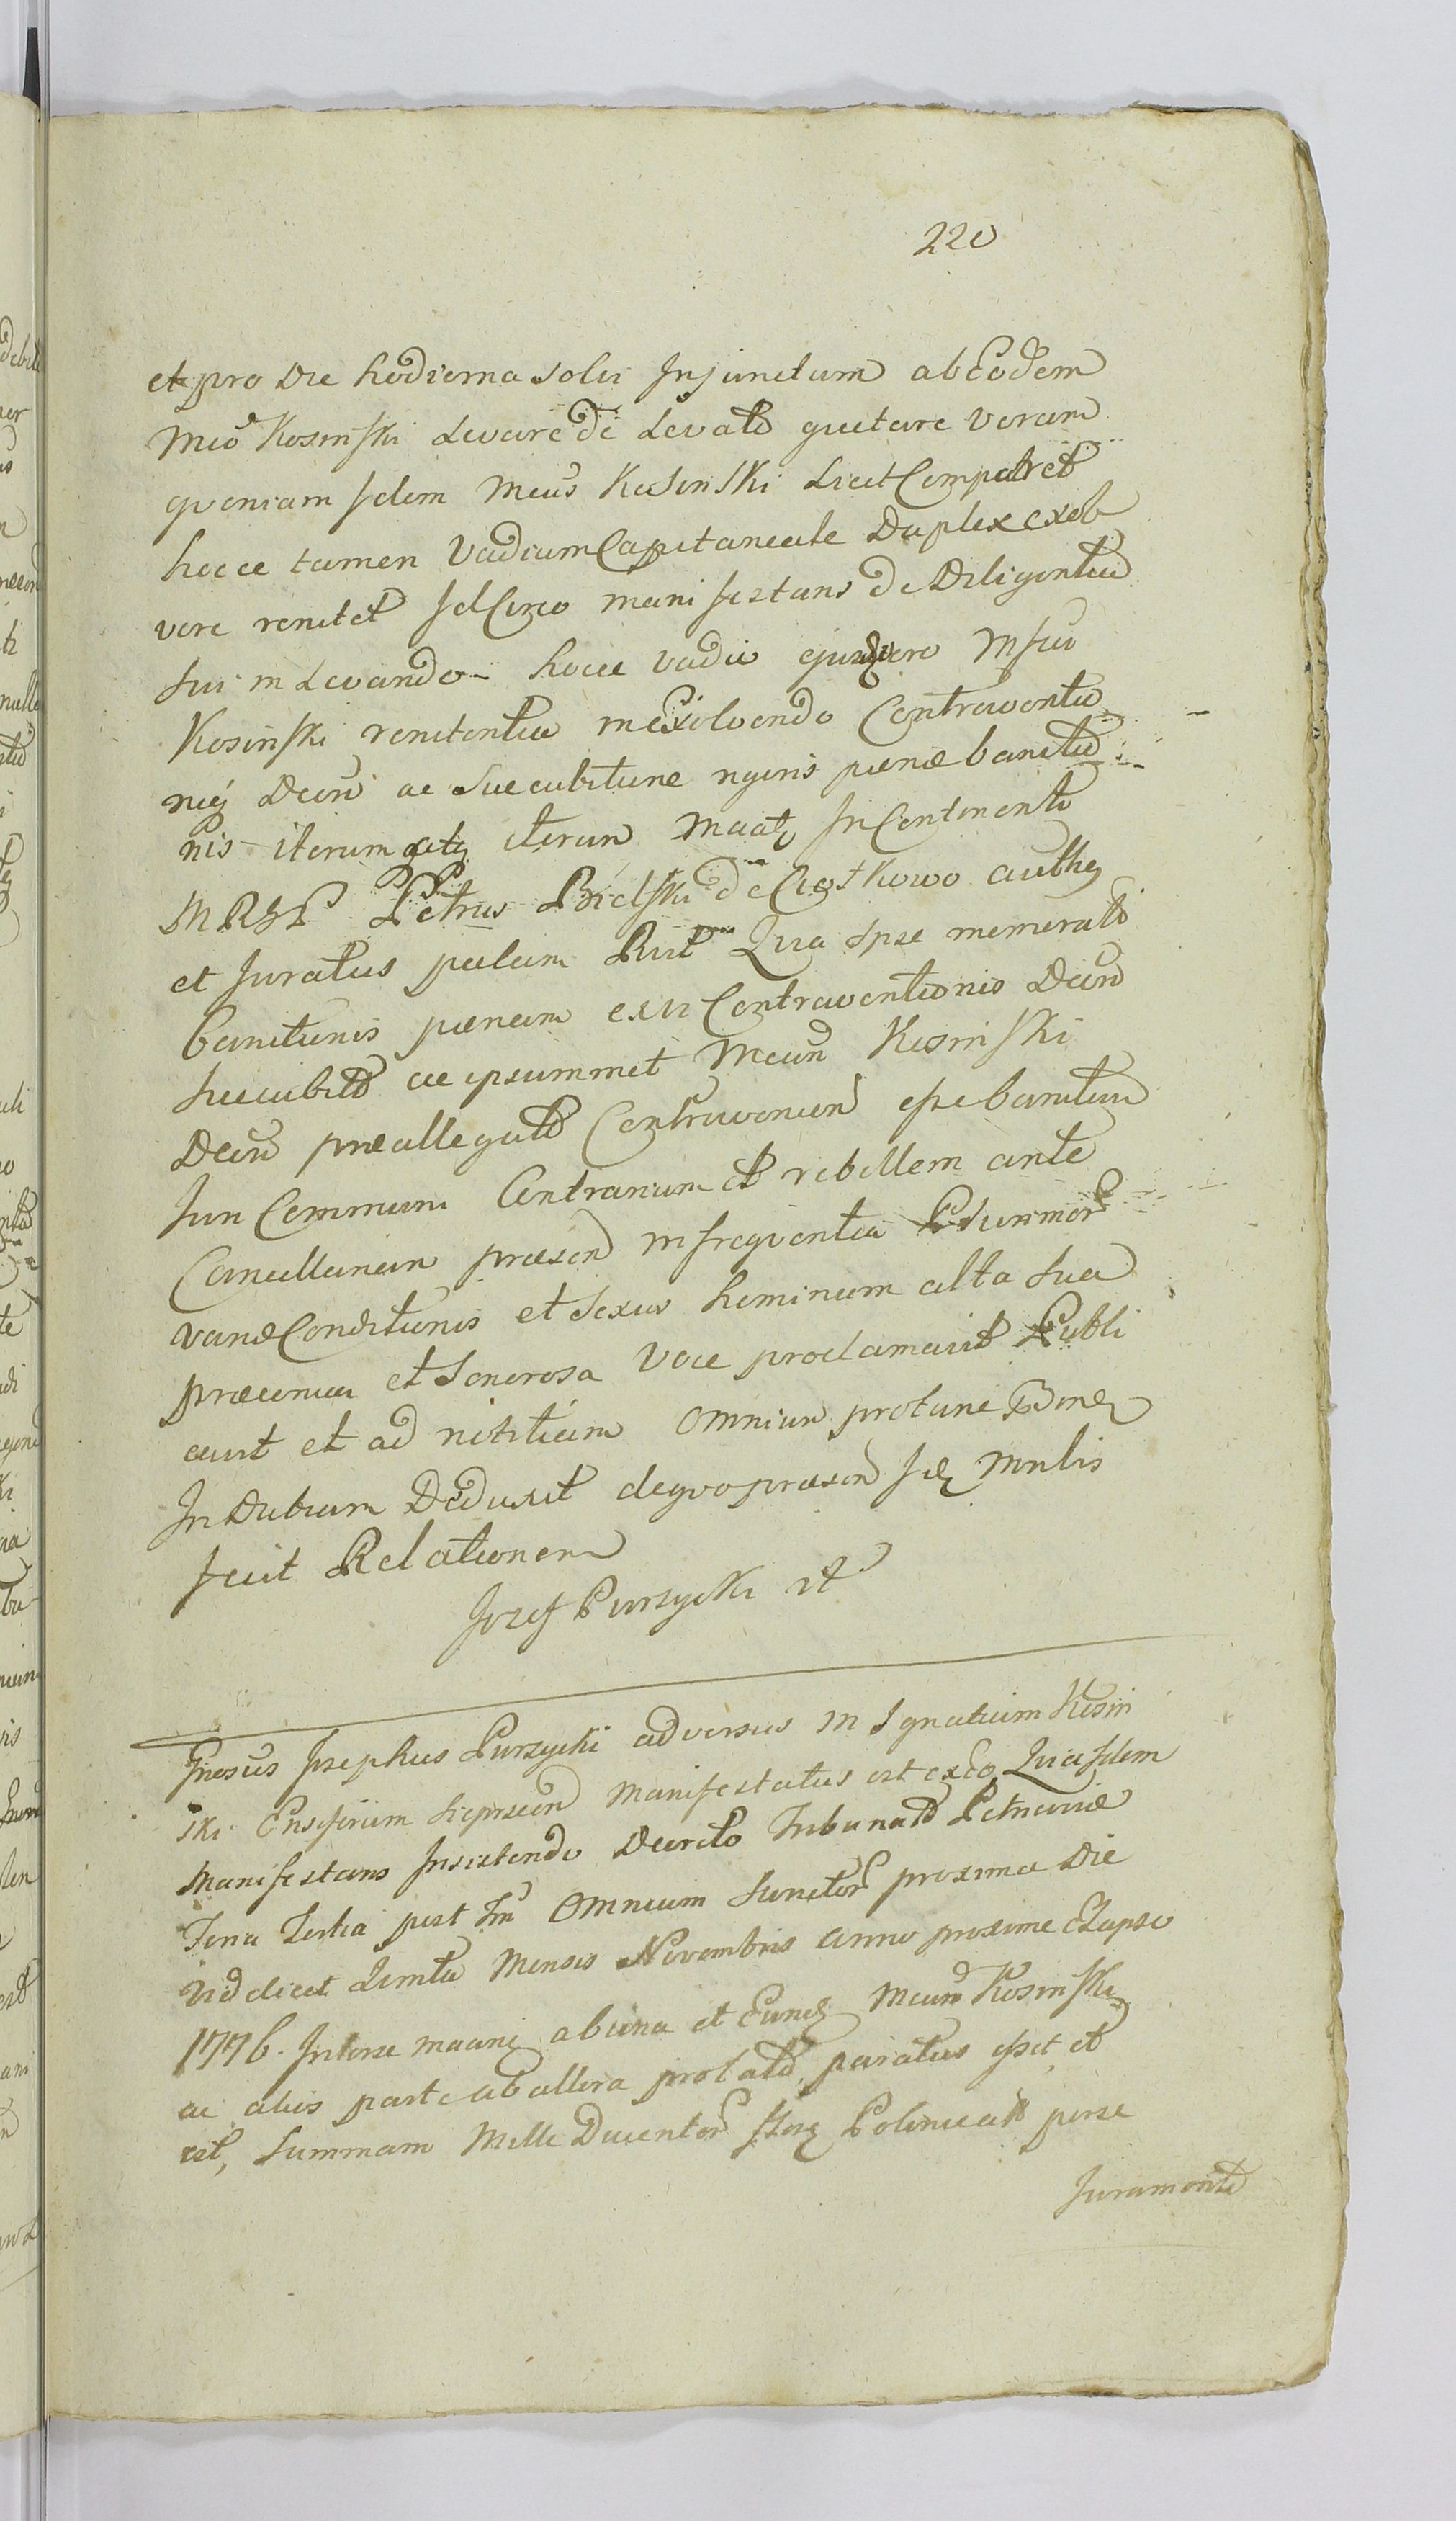 220
et pro Die hodierna solvi Injunctum ab Eodem
Mco Kosinski Levare de Levato quietare Verum
qvoniam Idem Mcus Kosinski Licet Comparet
hocce tamen Vadium Capitaneale Duplex exol
vere renitet Idcirco manifestans de Diligentia
sui in Levando hocce vadio ejusdem vero Msci
Kosinski renitentia in Exolvendo Contraventio
niq Decreti ac Succubitione poenæ banitio
nis iterum atq iterum Incontinenti
M R G P Petrus Bielski de authen
et Juratus palam Quia Ipse memorati
banitionis poenam ex vi Contraventionis Decreti
succubito ac ipsummet Mcum Kosinski
Decreti præallegato Contravenien esse banitum
Juri Communi Contrarium et rebellem ante
Cancellariam præsen in freqventia Plurimor
variæ Conditionis et Sexus hominum alta sua
præconica et Sonorosa Voce proclamavit Publi
cavit et ad notitiam Omnium protunc
Deduxit de qvo præsen
fecit Relationem
Jozef Purzycki
Josephus Purzycki adversus M Ignatium Kosin
ski Ensiferum Manifestatus est Quia Idem
Manifestans Insistendo Decreto Tribunali Petricoviæ
Feria Tertia post Omnium Sanctor proxima Die
Videlicet Mensis Novembris Anno proxime Elapso
1776. Inter se ab una et Mcum Kosinski
ac aliis parte ab altera prolato, paratus esset et
est, Summam Mille Ducentor flor Polonicali per se
Juramento